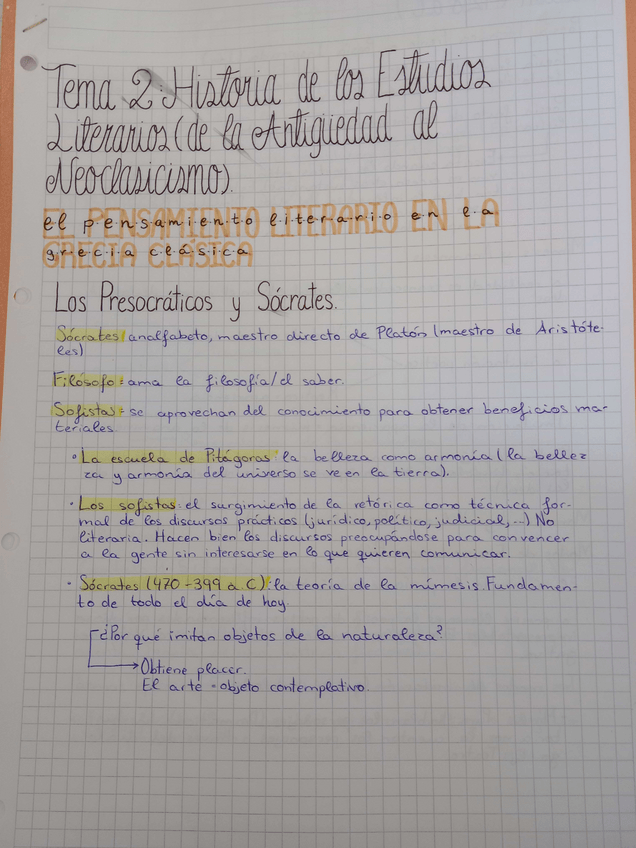 Tema 2: Historia de los Estudios
Literarios (de la Antigüedad al
Neoclasicismo).
EL PENSAMIENTO LITERARIO EN LA
GRECIA CLÁSICA
Los Presocráticos y Sócrates.
Sócrates: analfabeto, maestro directo de Platón (maestro de Aristóte-
les)
Filósofo: ama la filosofía/el saber.
Sofista: se aprovechan del conocimiento para obtener beneficios ma-
teriales.
• La escuela de Pitágoras: la belleza como armonía (la belle
za y armonía del universo se ve en la tierra).
• Los sofistas: el surgimiento de la retórica como técnica for-
mal de los discursos prácticos (jurídico, político, judicial, ...) No
literaria. Hacen bien los discursos preocupándose para convencer
a la gente sin interesarse en lo que quieren comunicar.
• Sócrates (470-399 a C): la teoría de la mímesis. Fundamen-
to de todo el día de hoy.
¿Por qué imitan objetos de la naturaleza?
Obtiene placer.
El arte = objeto contemplativo.